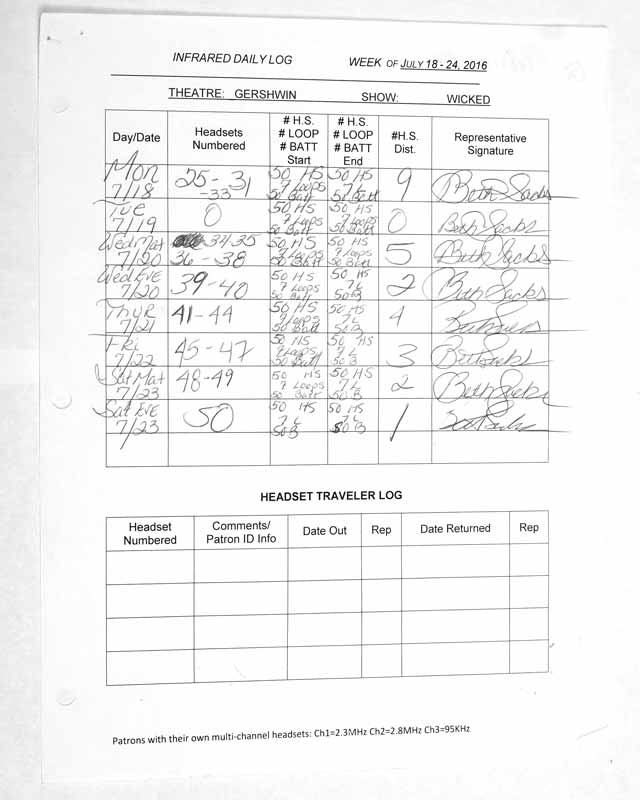 INFRARED DAILY LOG WEEK OF JULY 18 - 24, 2016
THEATRE: GERSHWIN SHOW: WICKED
Day/Date Headsets Numbered # H.S. # LOOP # BATT Start # H.S. # LOOP # BATT End #H.S. Dist. Representative Signature
Mon 7/18 25 - 31 -33 50 HS 7 Loops 50 Batt 50 HS 7L 50 Batt 9 Beth Sacks
Tue 7/19 0 50 HS 7 Loops 50 Batt 50 HS 7 Loops 50 Batt 0 Beth Sacks
Wed Mat 7/20 34-35 36 - 38 50 HS 7 Loops 50 Batt 50 HS 7 Loops 50 Batt 5 Beth Sacks
Wed Eve 7/20 39 - 40 50 HS 7 Loops 50 Batt 50 HS 7L 50 B 2 Beth Sacks
Thur 7/21 41 - 44 50 HS 7 Loops 50 Batt 50 HS 7 L 50 B 4 Beth Sacks
Fri 7/22 45 - 47 50 HS 7 Loops 50 Batt 50 HS 7 L 50 B 3 Beth Sacks
Sat Mat 7/23 48-49 50 HS 7 Loops 50 Batt 50 HS 7 L 50 B 2 Beth Sacks
Sat Eve 7/23 50 50 HS 7 L 50 B 50 HS 7L 50 B 1 Beth Sacks
HEADSET TRAVELER LOG
Headset Numbered Comments/ Patron ID Info Date Out Rep Date Returned Rep
Patrons with their own multi-channel headsets: Ch1=2.3MHz Ch2=2.8MHz Ch3=95KHz